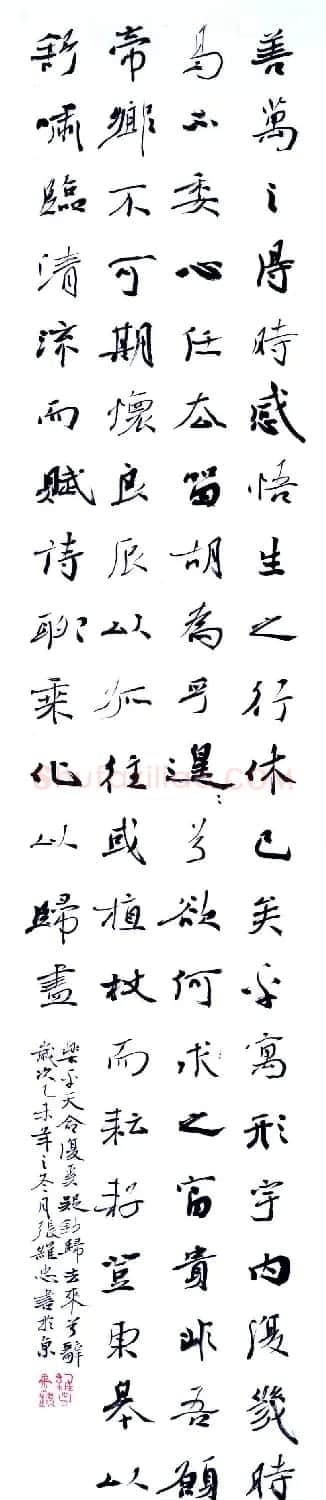 善萬之得時感悟生之行休已矣乎寓形宇內復幾時
曷不委心任去留胡為乎遑〻兮欲何求之富貴非吾願
帝鄉不可期懷良辰以孤往或植杖而耘耔登東皋以
舒嘯臨清流而賦詩聊乘化以歸盡
樂乎天命復奚疑節歸去來兮辭
歲次乙未年之冬月張維忠書於京